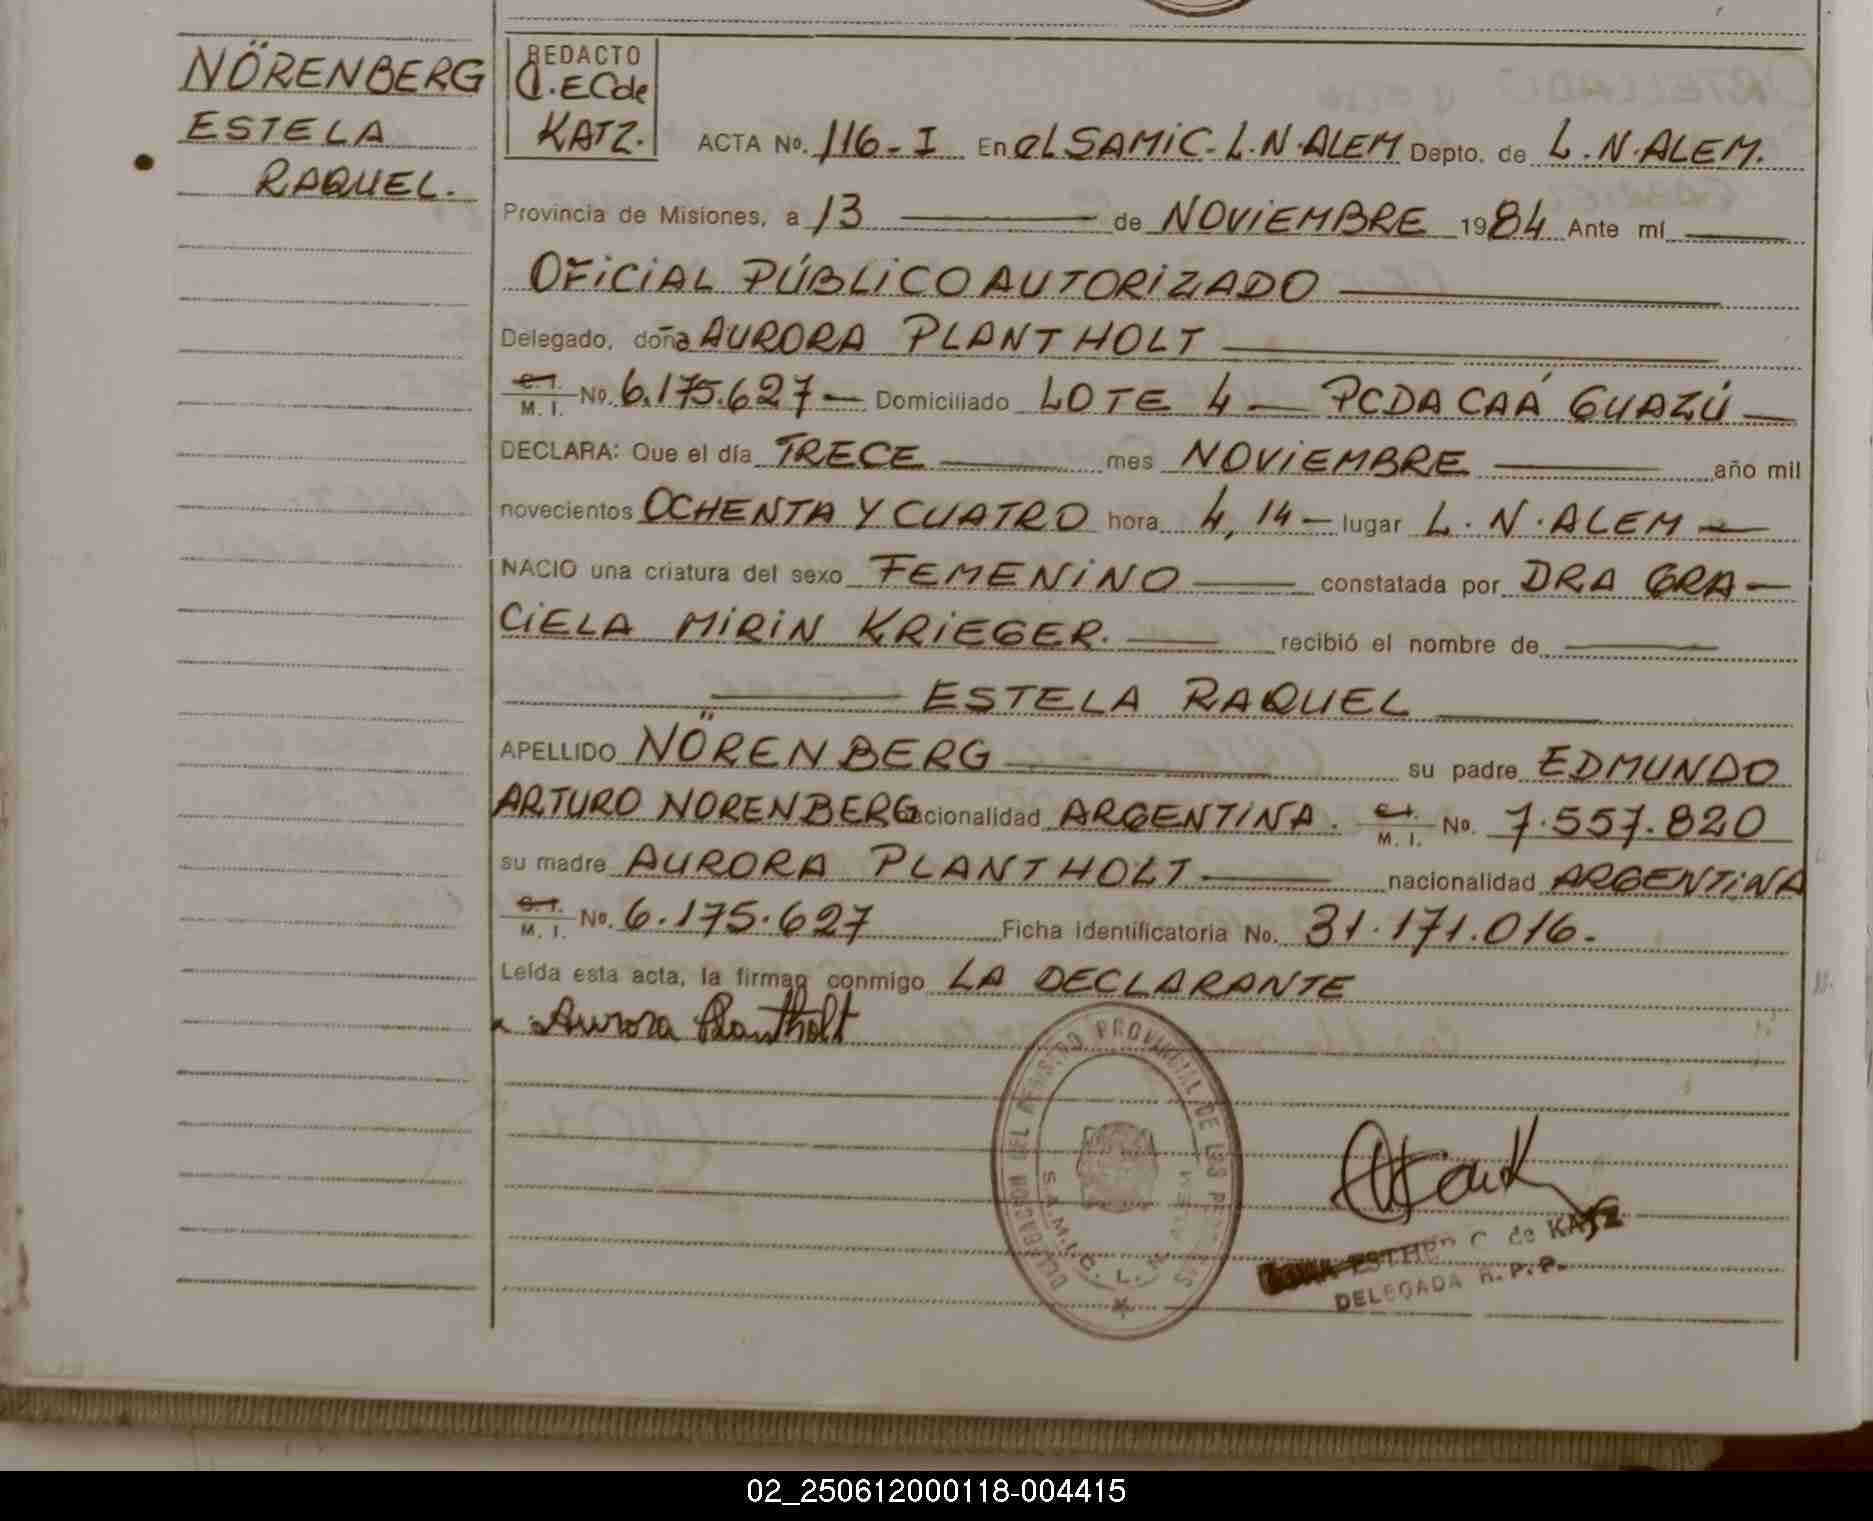 NÖRENBERG
ESTELA
RAQUEL.
REDACTO
E C de
KATZ.
ACTA No. 116-I En el SAMIC. L.N. ALEM Depto. de L.N. ALEM.
Provincia de Misiones, a 13 de NOVIEMBRE 1984 Ante mí
OFICIAL PÚBLICO AUTORIZADO
Delegado, doña AURORA PLANTHOLT
C.I. M.I. No. 6.175.627 — Domiciliado LOTE 4 — PCDA CAÁ GUAZÚ —
DECLARA: Que el día TRECE mes NOVIEMBRE año mil
novecientos OCHENTA Y CUATRO hora 4,14 — lugar L.N. ALEM —
NACIO una criatura del sexo FEMENINO constatada por DRA GRA—
CIELA MIRIN KRIEGER. recibió el nombre de
ESTELA RAQUEL
APELLIDO NÖRENBERG su padre EDMUNDO
ARTURO NORENBERG nacionalidad ARGENTINA. C.I. M.I. No. 7.557.820
su madre AURORA PLANTHOLT nacionalidad ARGENTINA
C.I. M.I. No. 6.175.627 Ficha identificatoria No. 31.171.016.
Leída esta acta, la firman conmigo LA DECLARANTE
Aurora Plantholt
DELEGACION DEL REGISTRO PROVINCIAL DE LAS PERSONAS
S.A.M.I.C. L. N. ALEM
ESTHER C. de KATZ
DELEGADA R.P.P.
02_250612000118-004415